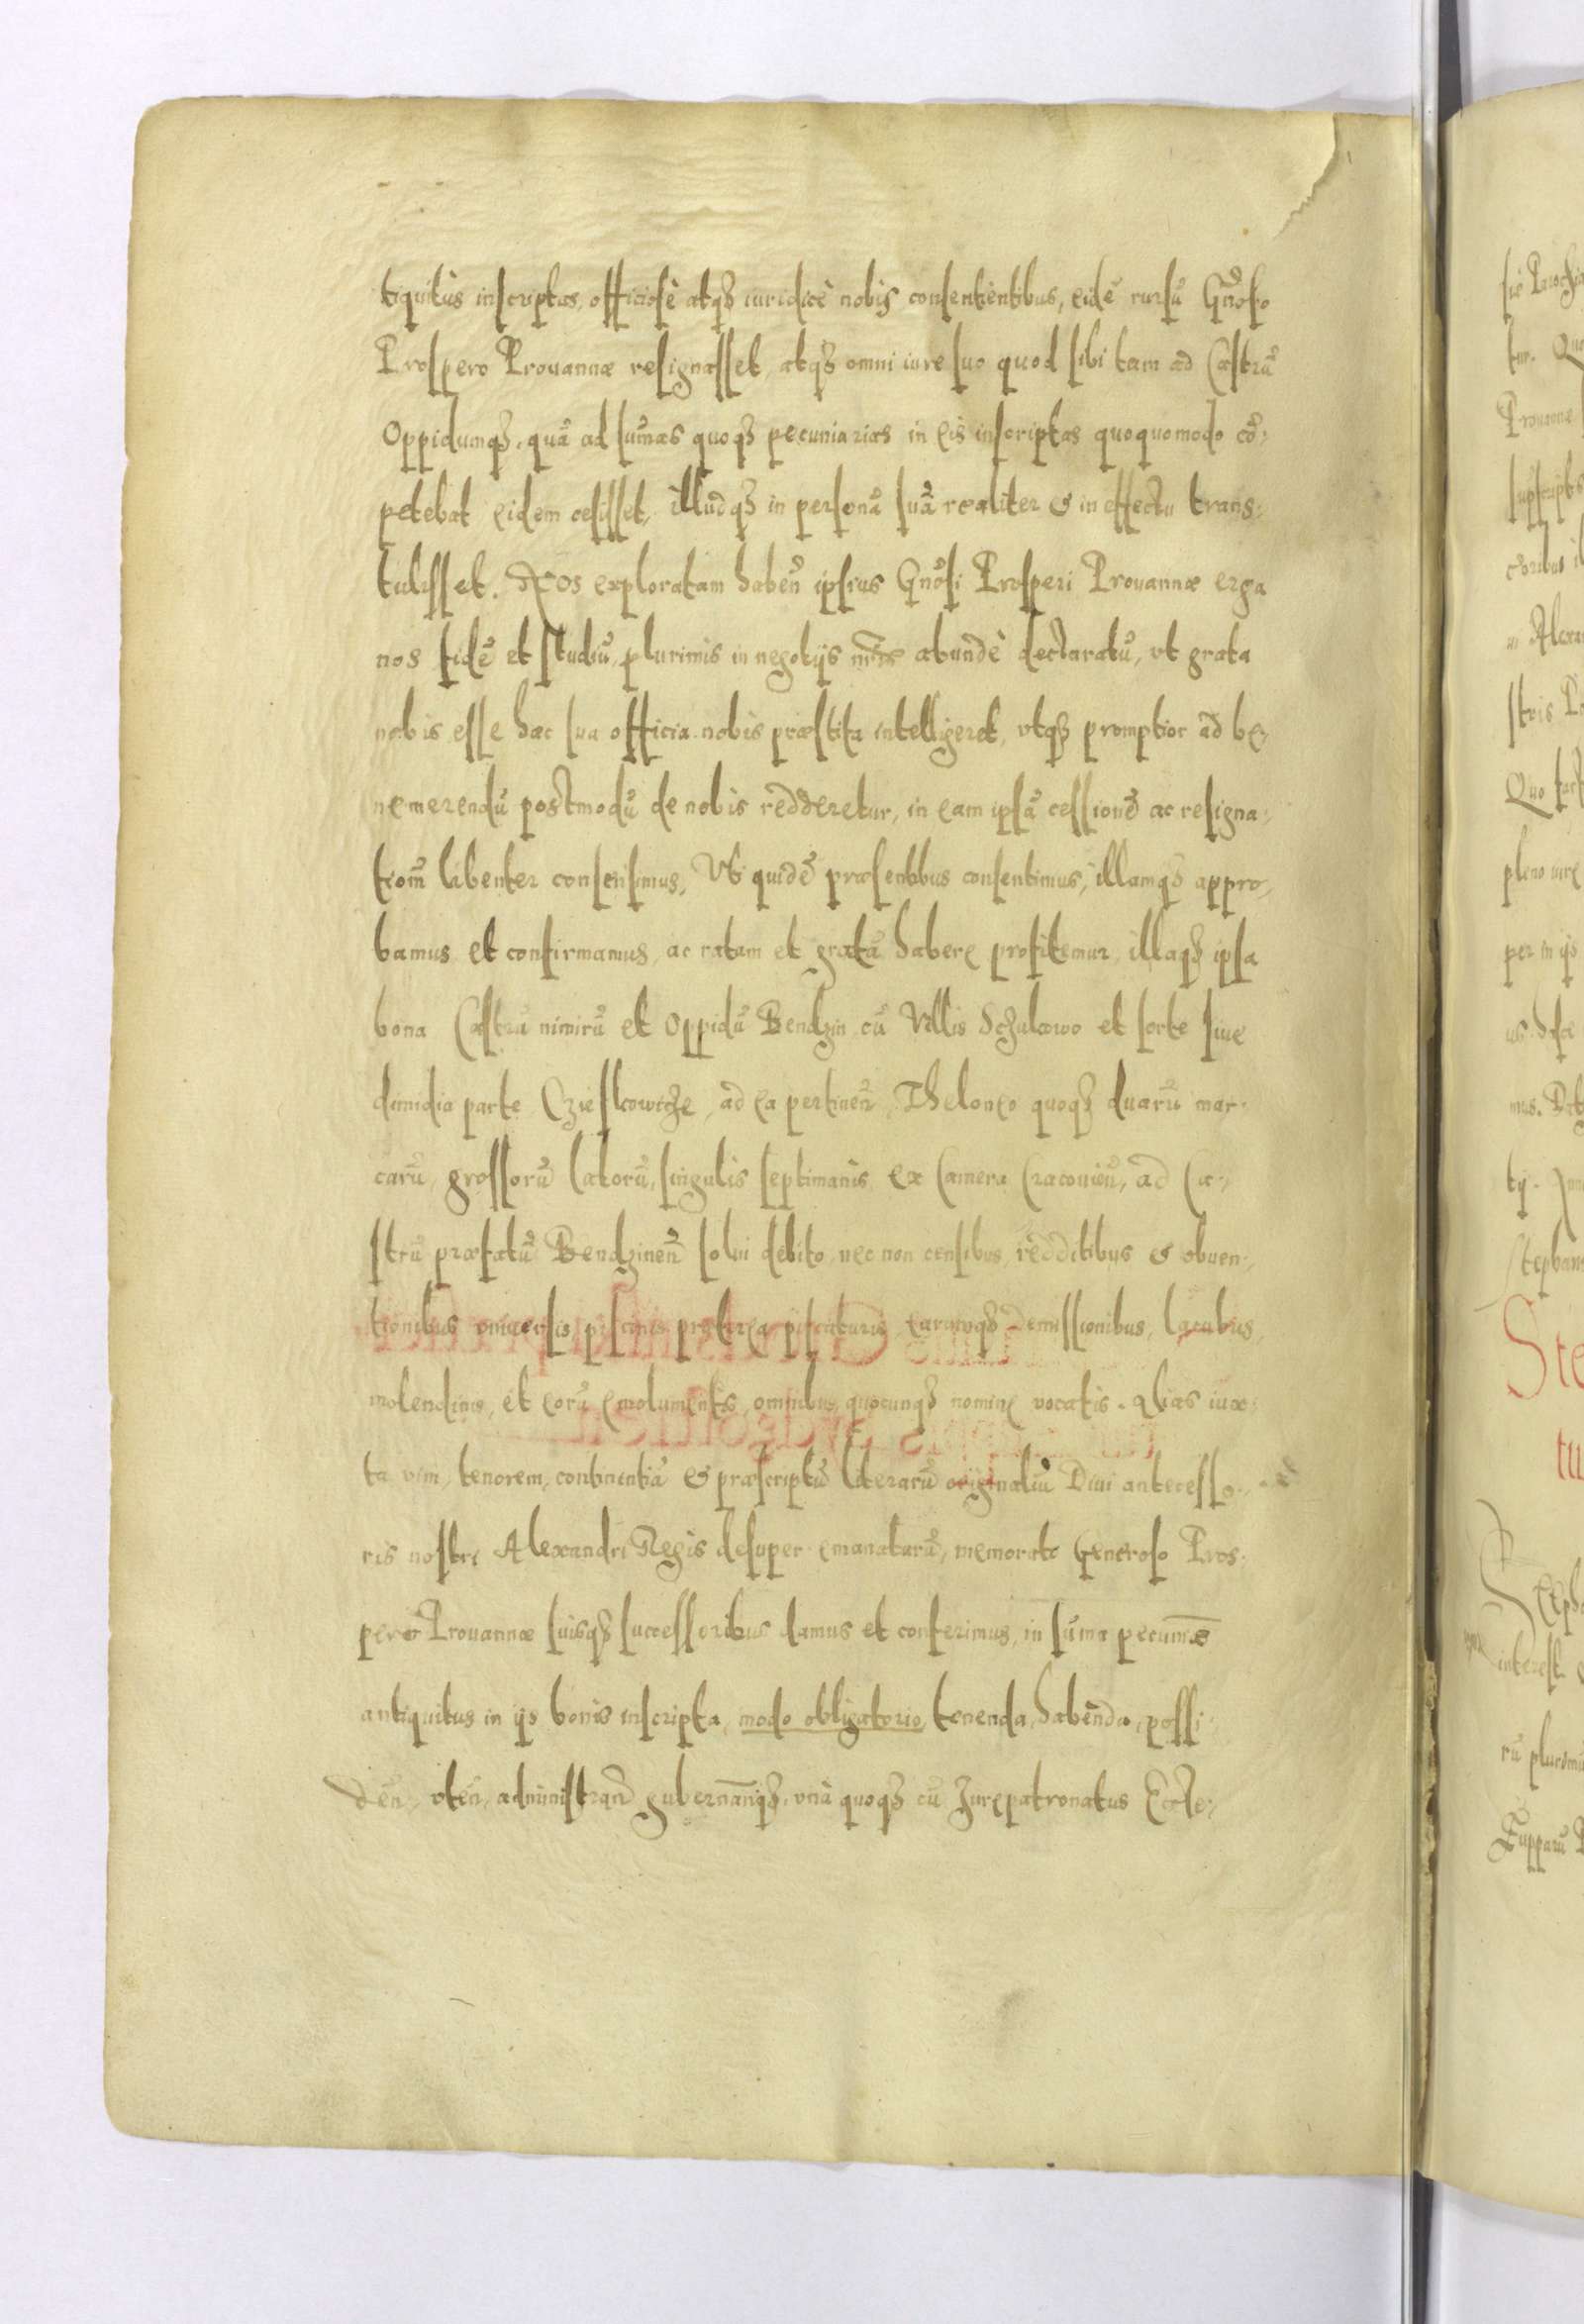 tiquitùs inscriptas, officiosè atqȝ iuridicè nobis consentientibus, eidē rursū Gn̄oso
Prospero Prouannæ resignasset, atqȝ omni iure suo quod sibi tam ad Castrū
Oppidumqȝ, quā ad sum̄as quoqȝ pecuniarias in eis inscriptas quoquomodo cō-
petebat eidem cesisset, illudqȝ in personā suā realiter & in effectu trans-
tulisset. Nos exploratam haben̄ ipsius Gn̄osi Prosperi Prouannæ erga
nos fidē et studiū, plurimis in negotijs nr̄is abundè declaratū, vt grata
nobis esse hæc sua officia nobis præstita intelligeret, vtqȝ promptior ad be-
nemerendū postmodū de nobis redderetur, in eam ipsā cessionē ac resigna-
tiom̄ libenter consensimus, Vti quidē præsentibus consentimus, illamqȝ appro-
bamus et confirmamus, ac ratam et gratā habere profitemur, illaqȝ ipsa
bona Castrū nimirū et Oppidū Bendzin cū Villis et sorte siue
dimidia parte ad ea pertinen̄, Theloneo quoqȝ duarū mar-
carū, grossorū latorū, singulis septimanis ex Camera Cracouien̄, ad Ca-
strū præfatū Bendzinen̄ solui debito, nec non censibus, redditibus & obuen-
tionibus vniuersis, piscinis præterea, piscaturis, earumqȝ demissionibus, lacubus,
molendinis, et eorū emolumentis, omnibus, quocunqȝ nomine vocatis. Alias iux-
ta vim, tenorem, continentiā & præscriptū literarū originaliū Diui antecesso-
ris nostri Alexandri Regis desuper emanatarū, memorato Generoso Pros-
pero Prouannæ suisqȝ successoribus damus et conferimus, in sum̄a pecuniæ
antiquitus in ijs bonis inscripta, modo obligatorio, tenenda, habenda, possi-
den̄, vten̄, administran̄ gubernan̄qȝ, vnà quoqȝ cū Jurepatronatus Eccle-